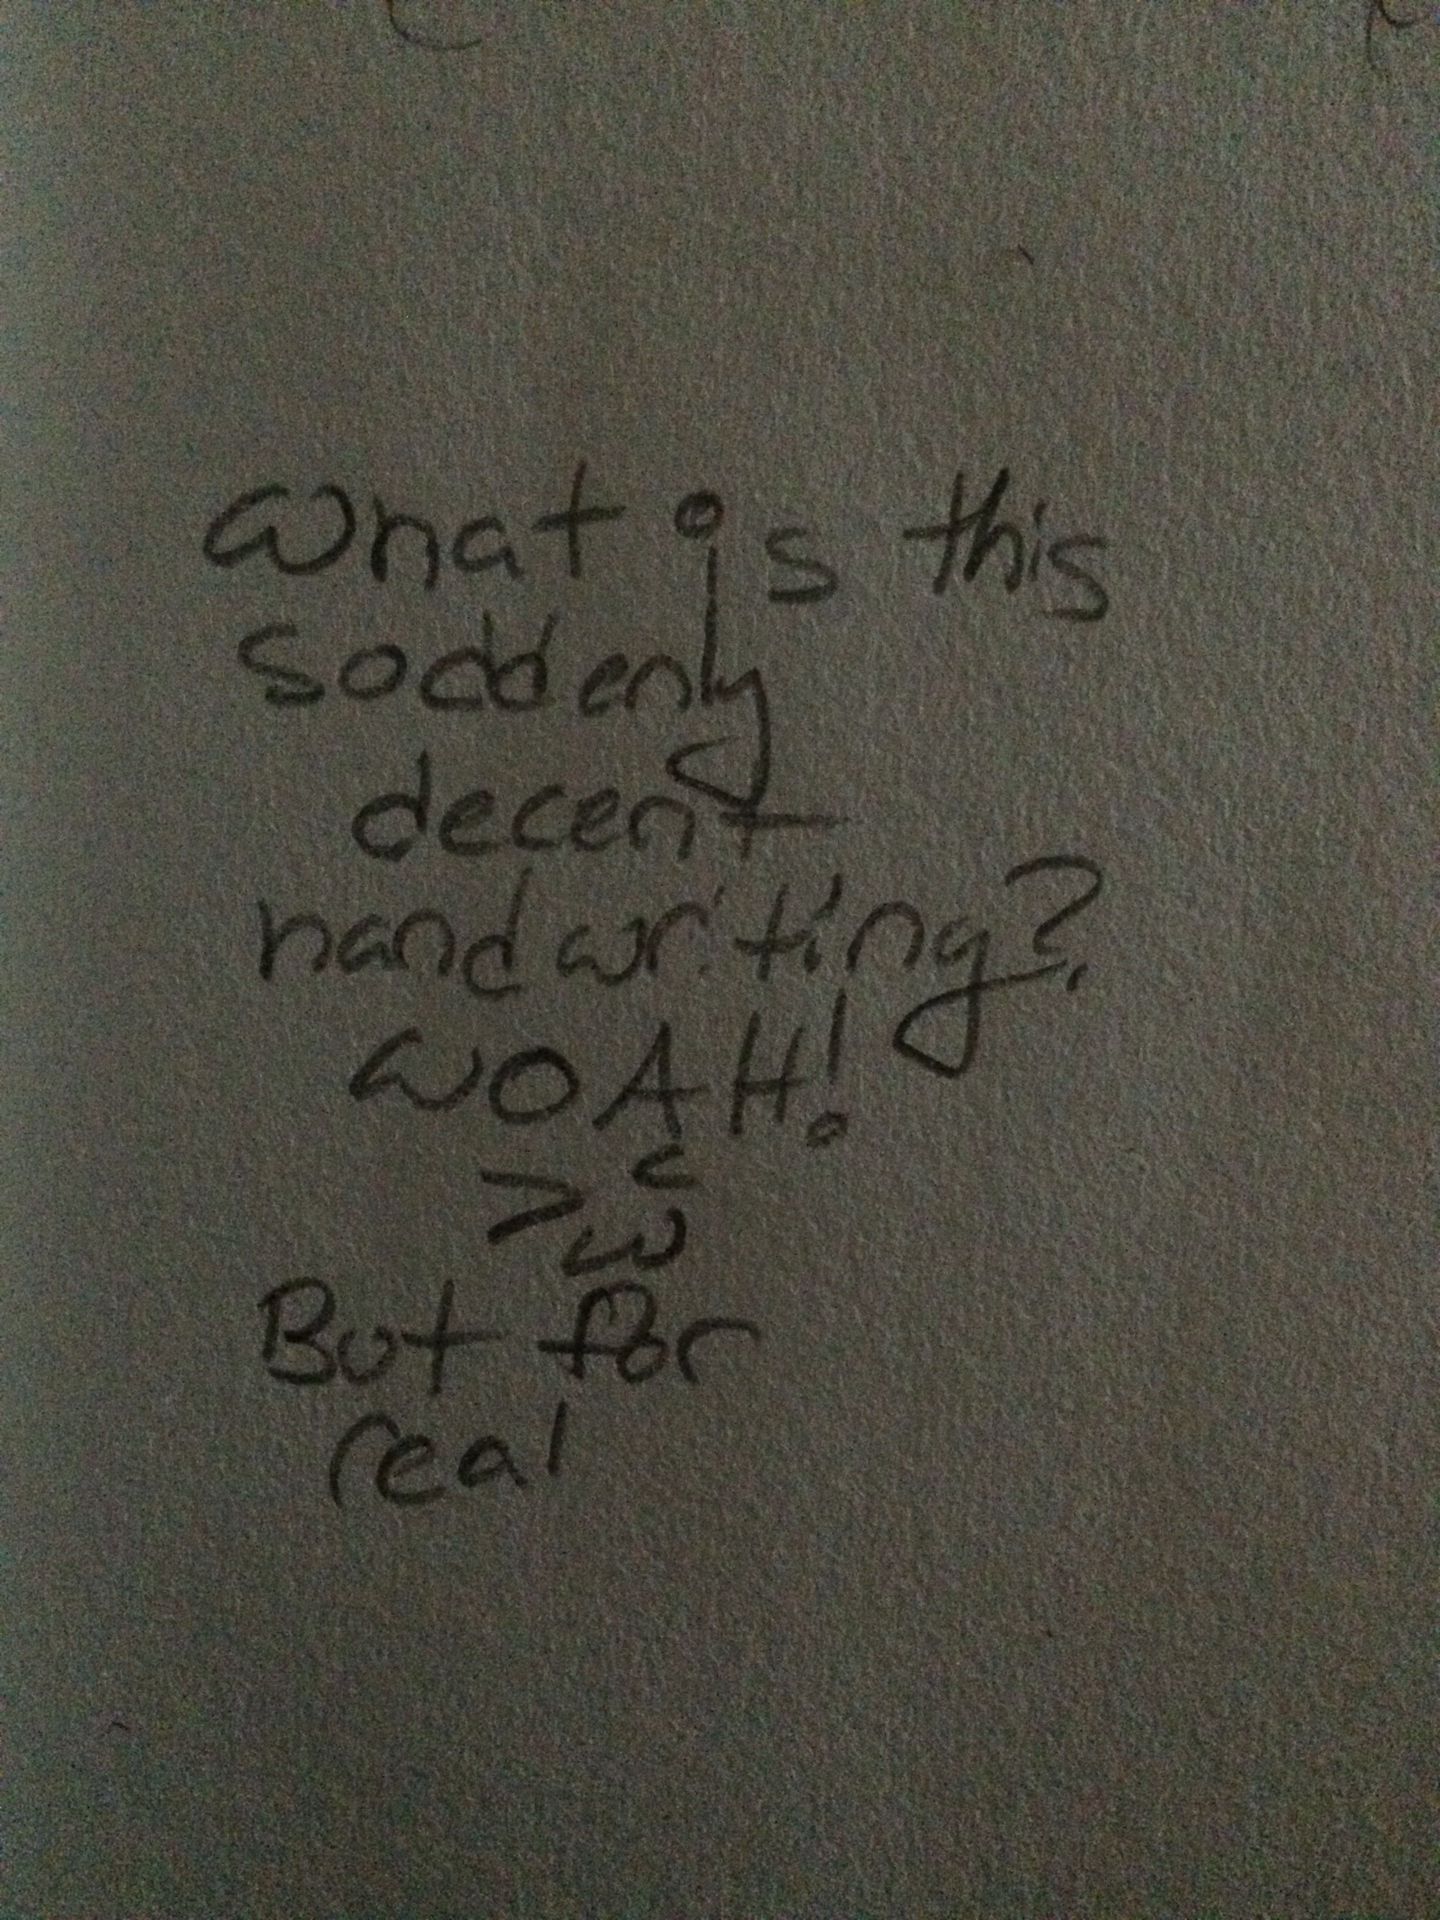 What is this
suddenly
decent
handwriting?
WOAH!
>ω<
But for
real